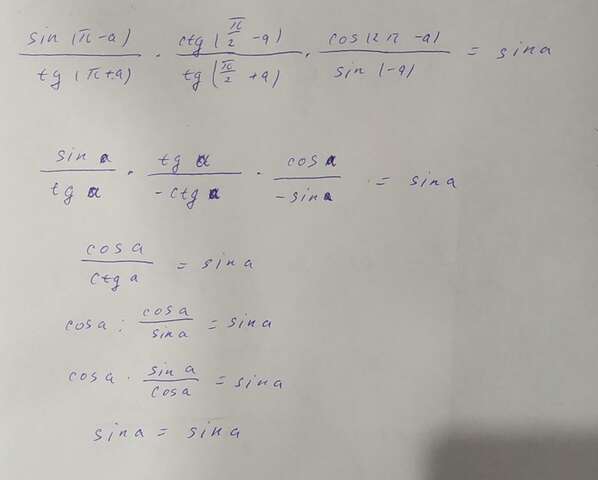 sin(π-a)/tg(π+a) · ctg(π/2-a)/tg(π/2+a) · cos(2π-a)/sin(-a) = sina
sina/tga · tga/-ctga · cosa/-sina = sina
cosa/ctga = sina
cosa : cosa/sina = sina
cosa · sina/cosa = sina
sina = sina